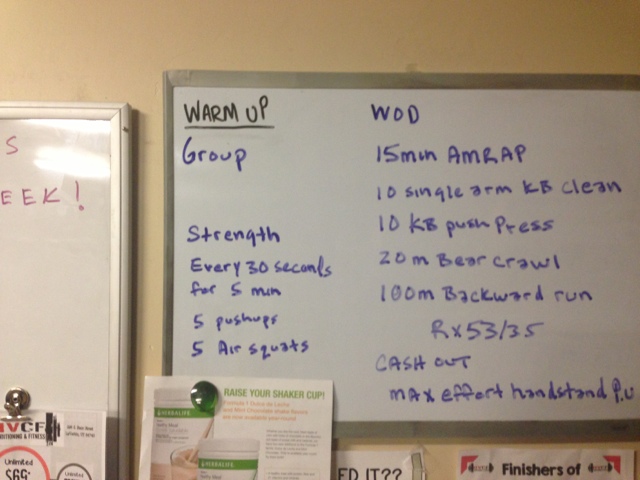 S
EEK!
WARM UP
Group
Strength
Every 30 seconds
for 5 min
5 pushups
5 Air squats
WOD
15min AMRAP
10 single arm KB clean
10 KB push Press
20m Bear crawl
100m Backward run
Rx 53/35
CASH OUT
max effort handstand P.U
HERBALIFE
HERBALIFE
RAISE YOUR SHAKER CUP!
VCF
& FITNESS
Unlimited
$69
Unlimited
ED IT??
Finishers of